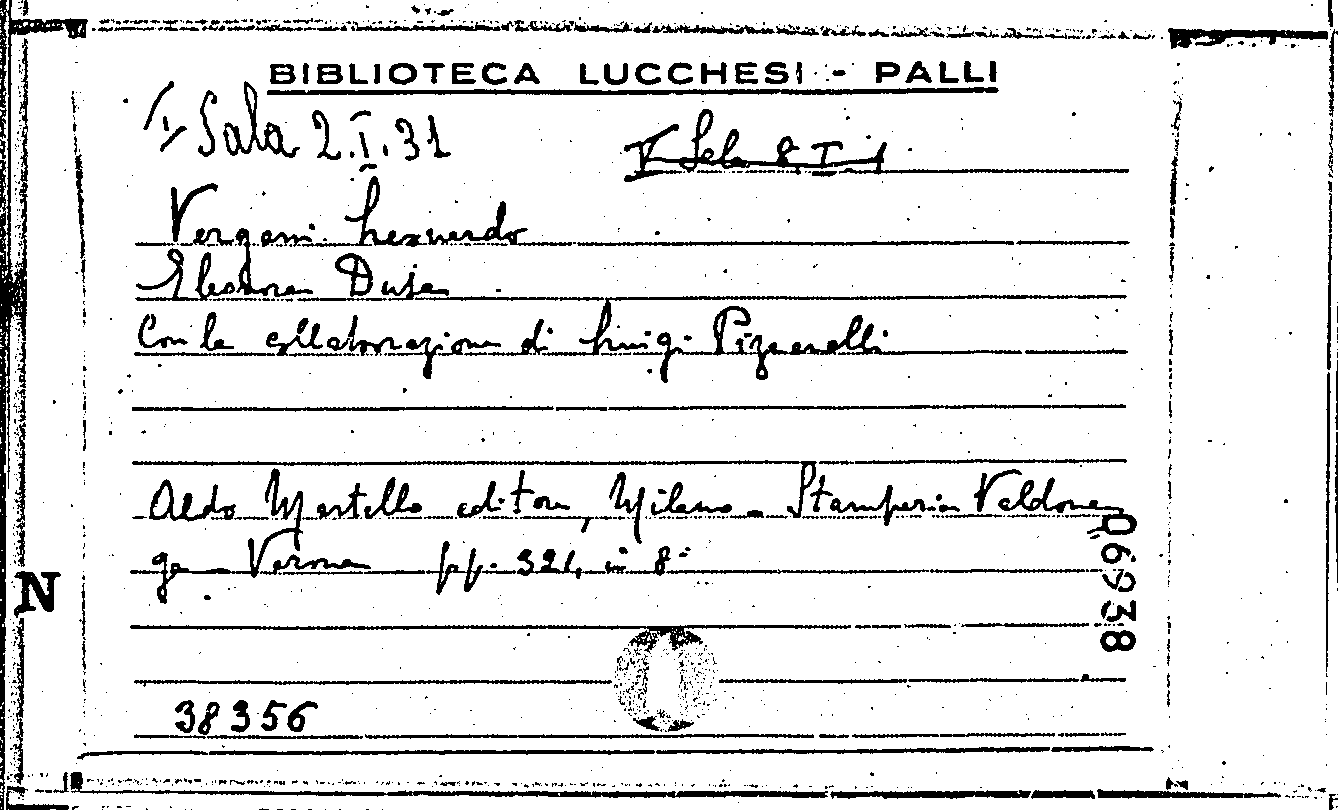 BIBLIOTECA LUCCHESI - PALLI
I Sala 2.I.31
V Sala 8.I.1
Vergani Leonardo
Eleonora Duse
Con la collaborazione di Luigi Pizzinelli
Aldo Martello editore, Milano - Stamperia Valdone
ga - Verona pp. 321, in 8°
06938
N
38356